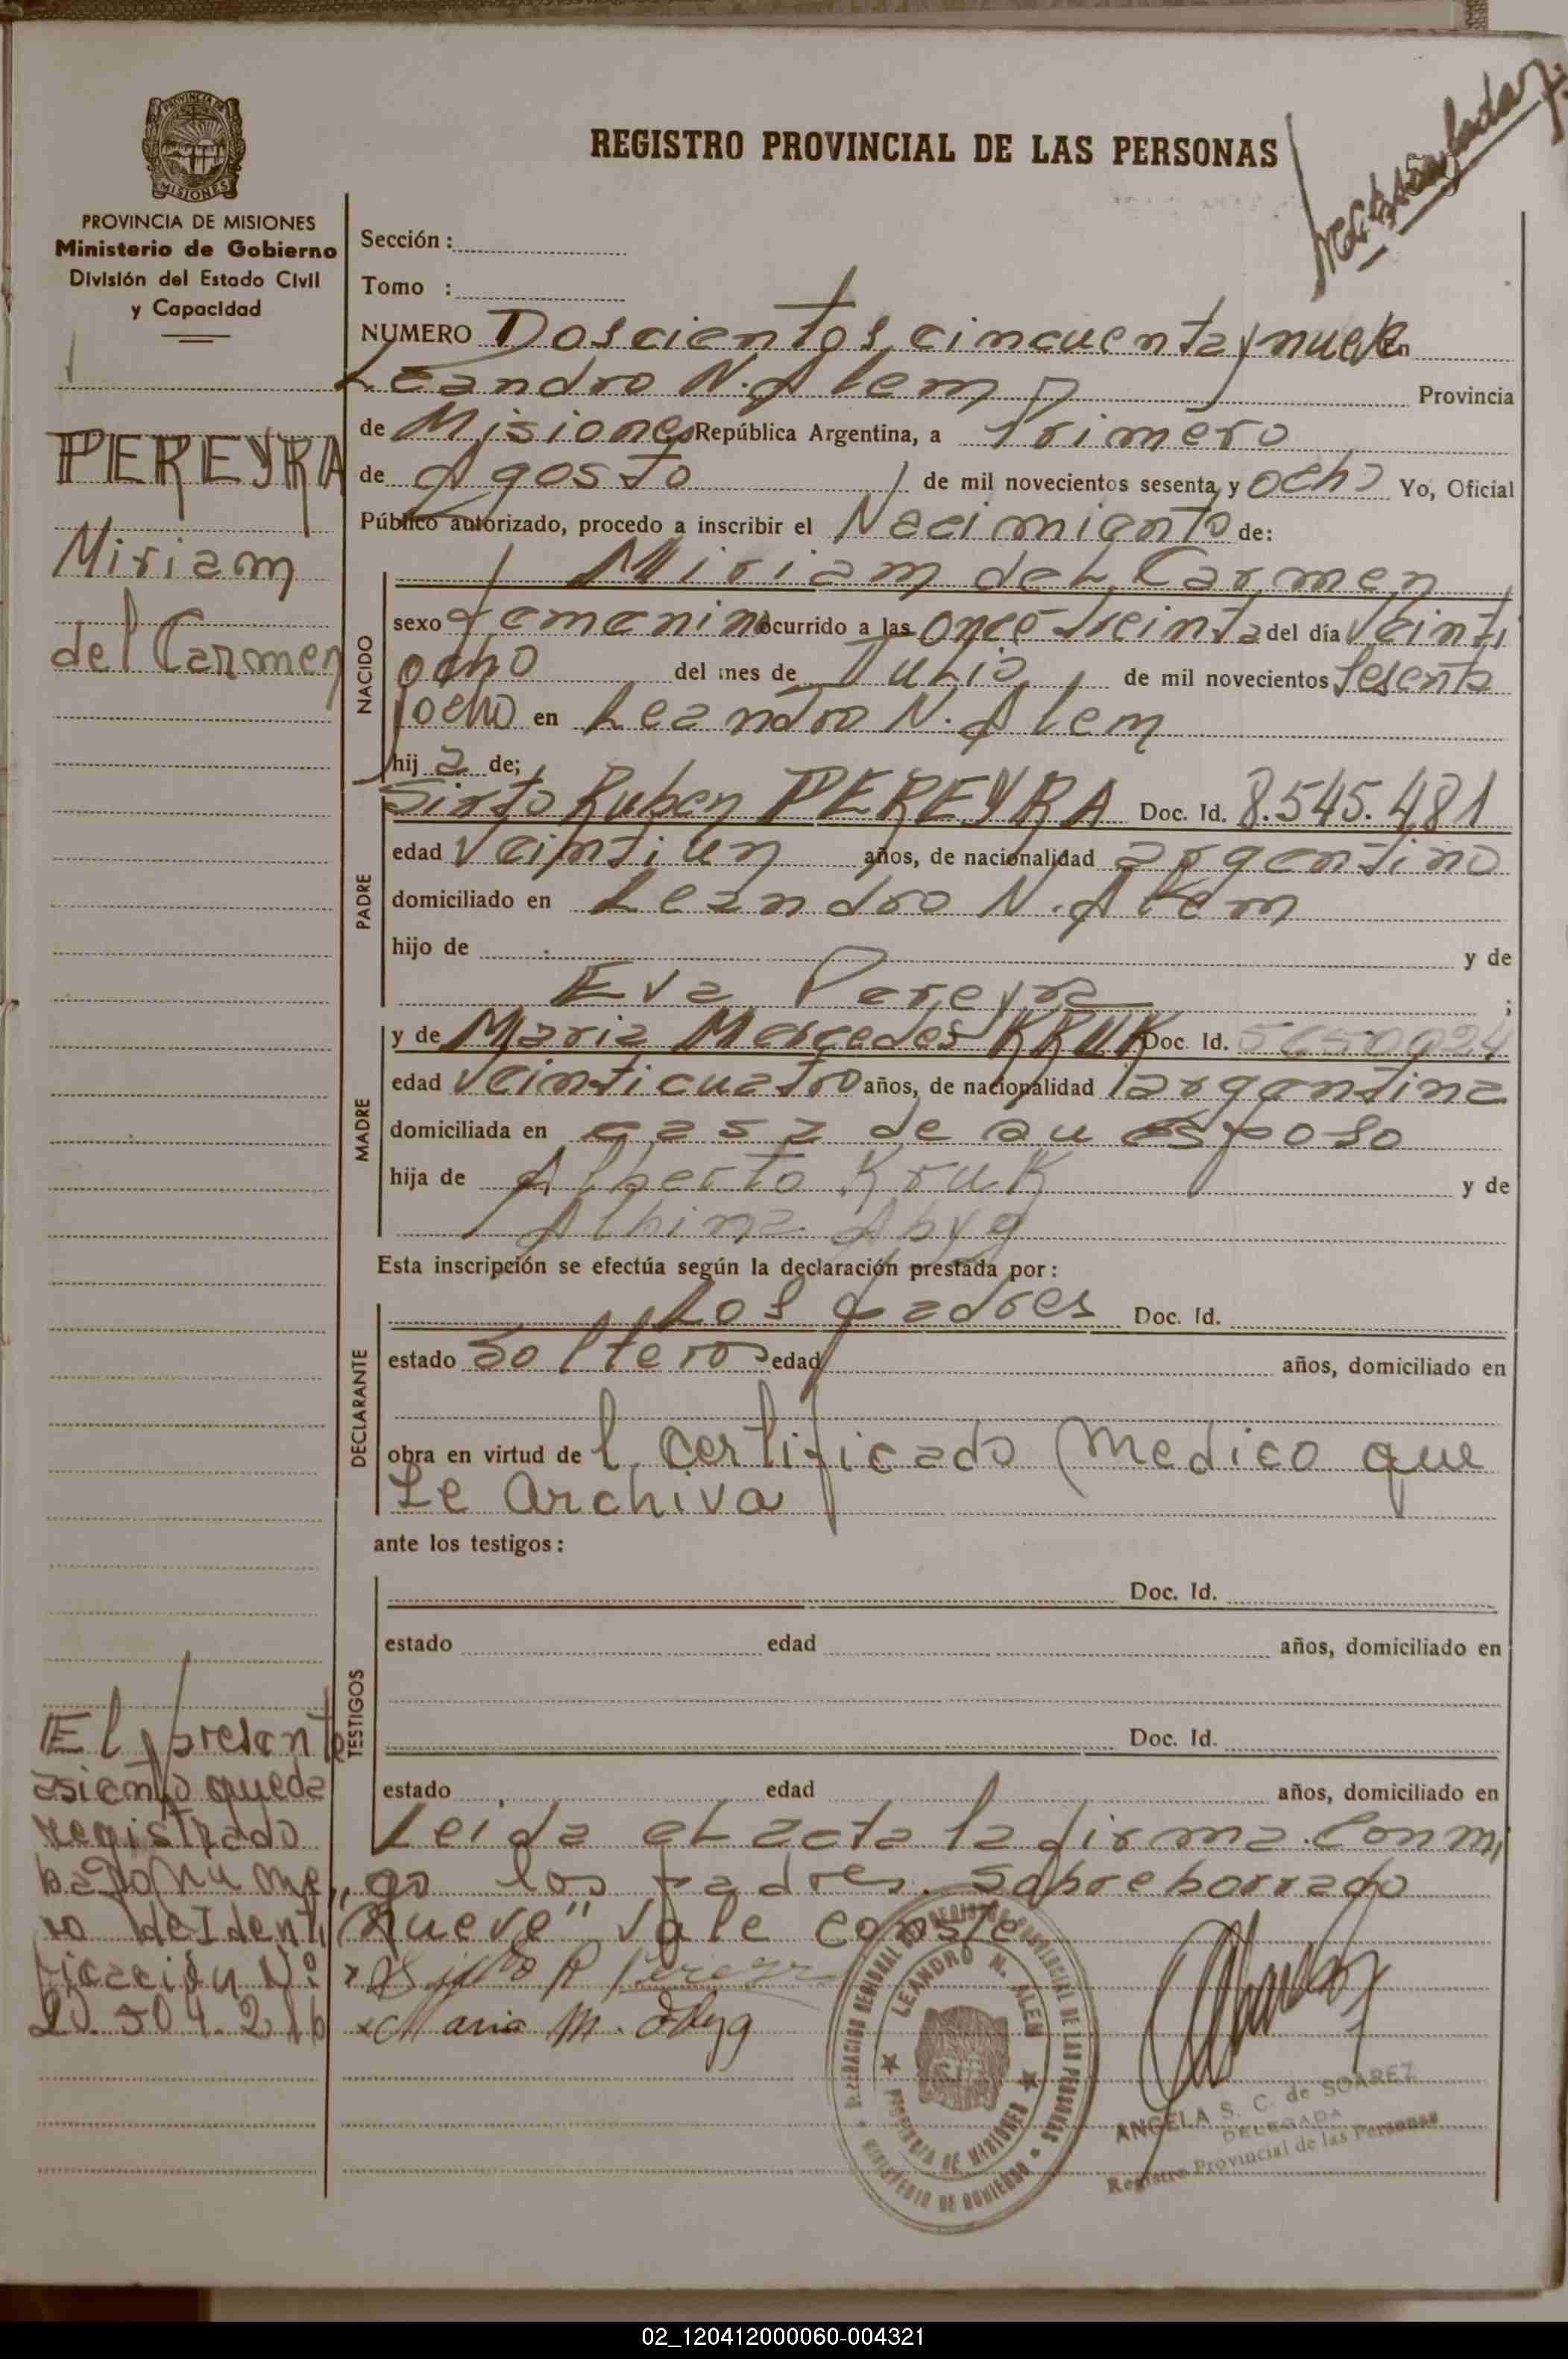 REGISTRO PROVINCIAL DE LAS PERSONAS
PROVINCIA DE MISIONES
PROVINCIA DE MISIONES
Ministerio de Gobierno
División del Estado Civil
y Capacidad
PEREYRA
Miriam
del Carmen
Sección :
Tomo :
NUMERO Doscientos cincuenta y nueve En
Leandro N. Alem Provincia
de Misiones República Argentina, a Primero
de Agosto de mil novecientos sesenta y ocho Yo, Oficial
Público autorizado, procedo a inscribir el Nacimiento de:
NACIDO
Miriam del Carmen
sexo femenino ocurrido a las once treinta del día Veinti
ocho del mes de Julio de mil novecientos Sesenta
y ocho en Leandro N. Alem
hij a de;
PADRE
Sixto Ruben PEREYRA Doc. Id. 8.545.481
edad Veintiun años, de nacionalidad argentino
domiciliado en Leandro N. Alem
hijo de y de
Eva Pereyra ;
MADRE
y de Maria Mercedes KRUK Doc. Id. 5650024
edad Veinticuatro años, de nacionalidad argentina
domiciliada en casa de su esposo
hija de Alberto Kruk y de
Albina Abyg
Esta inscripción se efectúa según la declaración prestada por :
DECLARANTE
Los padres Doc. Id.
estado Solteros edad años, domiciliado en
obra en virtud de l Certificado Medico que
se archiva
ante los testigos :
TESTIGOS
Doc. Id.
estado edad años, domiciliado en
Doc. Id.
estado edad años, domiciliado en
Leida el acta la firma conmi
go los padres. Sobreborrado
"nueve" Vale conste
Maria M. Abyg
El presente
asiento queda
registrado
bajo nume
ro de Identi
ficación Nº
20.504.216
LEANDRO N. ALEM
PROVINCIA DE MISIONES
MINISTERIO DE GOBIERNO
ANGELA S. C. de SOAREZ
DELEGADA
Registro Provincial de las Personas
02_120412000060-004321